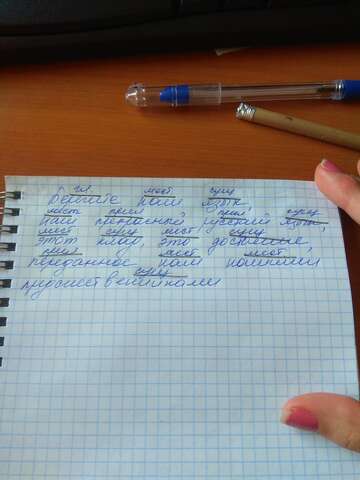 гл. мест сущ
Берегите наш язык,
мест прил прил. сущ
наш прекрасный русский язык,
мест сущ мест сущ
этот клад, это достояние,
прил мест мест
переданное нам нашими
сущ
предшественниками